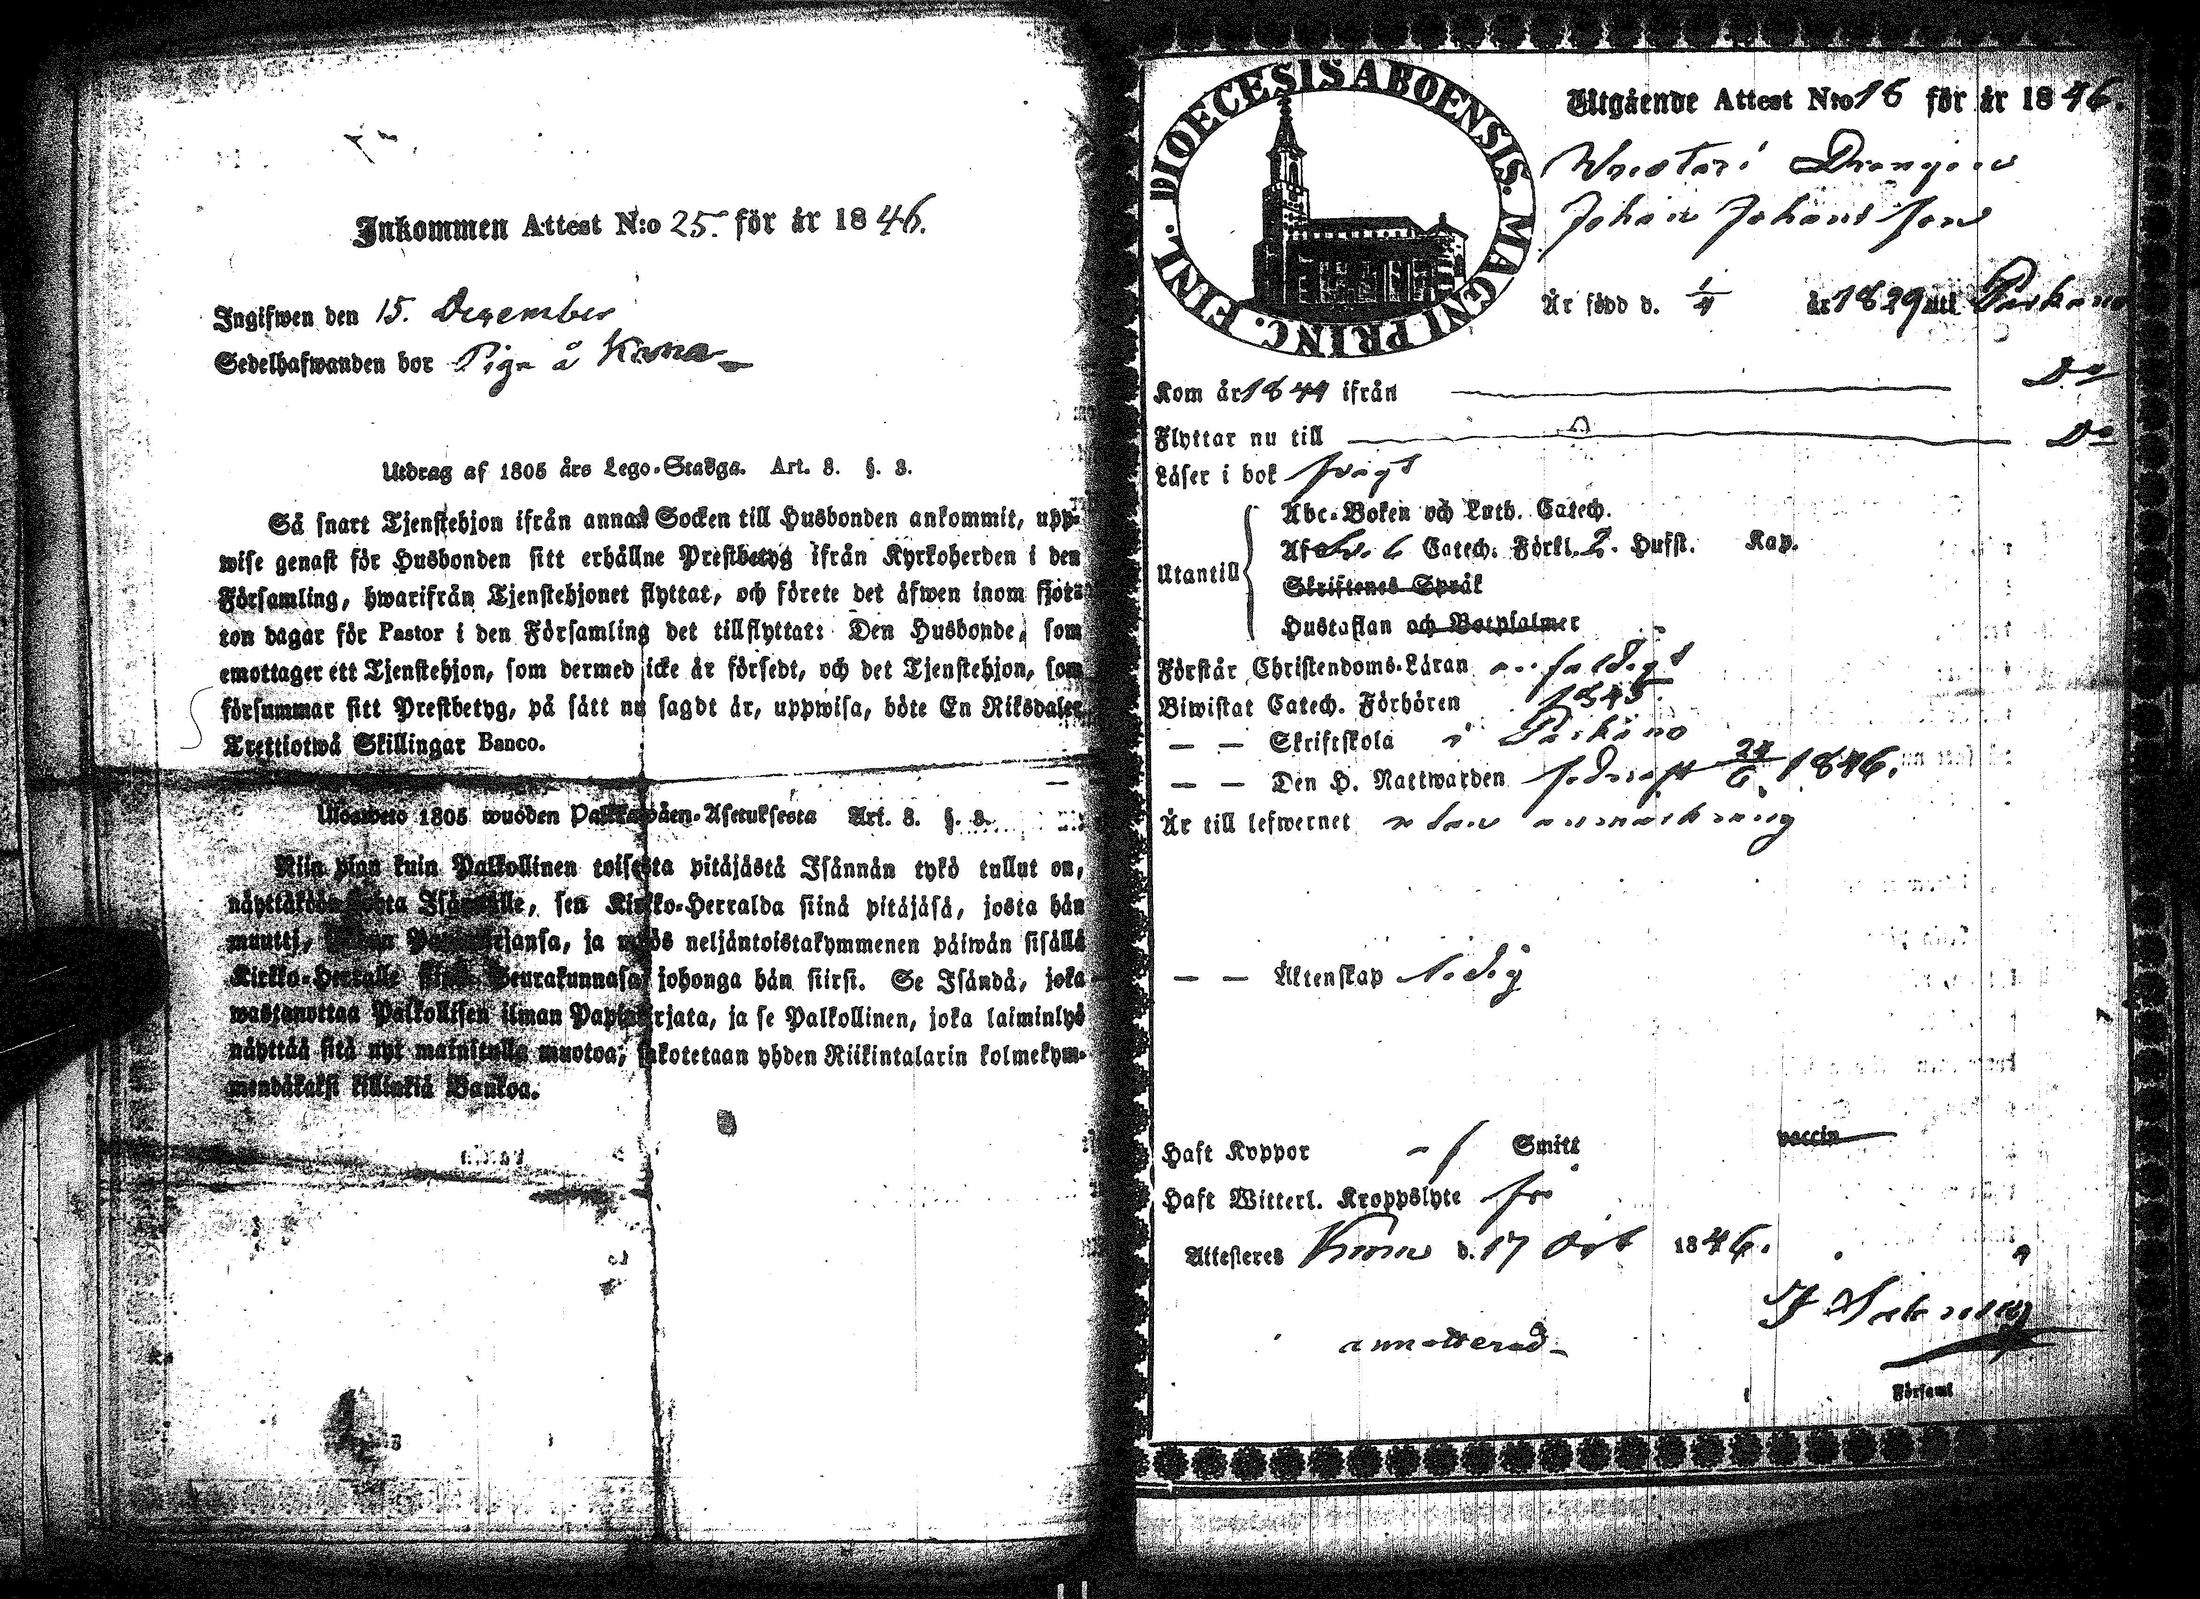 Inkommen Attest N:o 25. för år 1846.
Ingifwen den 15. December
Sedelhafwanden bor Piga å
Utdrag af 1805 års Lego-Stadga. Art. 8. §. 3.
Så snart Tjenstehjon ifrån annan Socken till Husbonden ankommit, upp-
wise genast för Husbonden sitt erhållne Prestbetyg ifrån Kyrkoherden i den
Församling, hwarifrån Tjenstehjonet flyttat, och förete det äfwen inom fjor-
ton dagar för Pastor i den Församling det tillflyttat: Den Husbonde, som
emottager ett Tjenstehjon, som dermed icke är försedt, och det Tjenstehjon, som
försummar sitt Prestbetyg, på sätt nu sagdt är, uppwisa, böte En Riksdaler
Trettiotwå Skillingar Banco.
Ulosweto 1805 wuoden Palkkawäen-Asetuksesta Art. 8. §. 3.
Niin pian kuin Palkollinen toisesta pitäjästä Isännän tykö tullut on,
näyttäköön kohta Isännälle, sen Kirkko-Herralda siinä pitäjäsä, josta hän
muutti, jansa, ja myös neljäntoistakymmenen päiwän sisällä
Kirkko-Herralle Seurakunnasa, johonga hän siirsi. Se Isändä, joka
wastanottaa Palkollisen ilman Papinkirjata, ja se Palkollinen, joka laiminlyö
näyttää sitä nyt mainitulla muotoa, sakotetaan yhden Riikintalarin kolmekym-
mendäkaksi killinkiä Bankoa.
DIOECESIS ABOENSIS. MAGNI PRINC. FINL.
Utgående Attest N:o 16 för år 1846.
Drengen
Johan Johansson
Är född d. 1/4 år 1829 uti Parkano
Kom år 1844 ifrån Do
Flyttar nu till Do
Läser i bok svagt
Utantill
Abc-Boken och Luth. Catech.
Af Catech. Förkl. 2. Hufst. Kap.
Skriftenes Språk
Hustaflan och Botpsalmer
Förstår Christendoms-Läran enfaldigt
Biwistat Catech. Förhören 1845.
— — Skriftskola i Parkano
— — Den H. Nattwarden sednast 24/6 1846.
Är till lefwernet utan anmärkning
— — Äktenskap ledig
Haft Koppor Smitt vaccin
Haft Witterl. Kroppslyte
Attesteres d. 17 Oct 1846.
annotterad
Församl